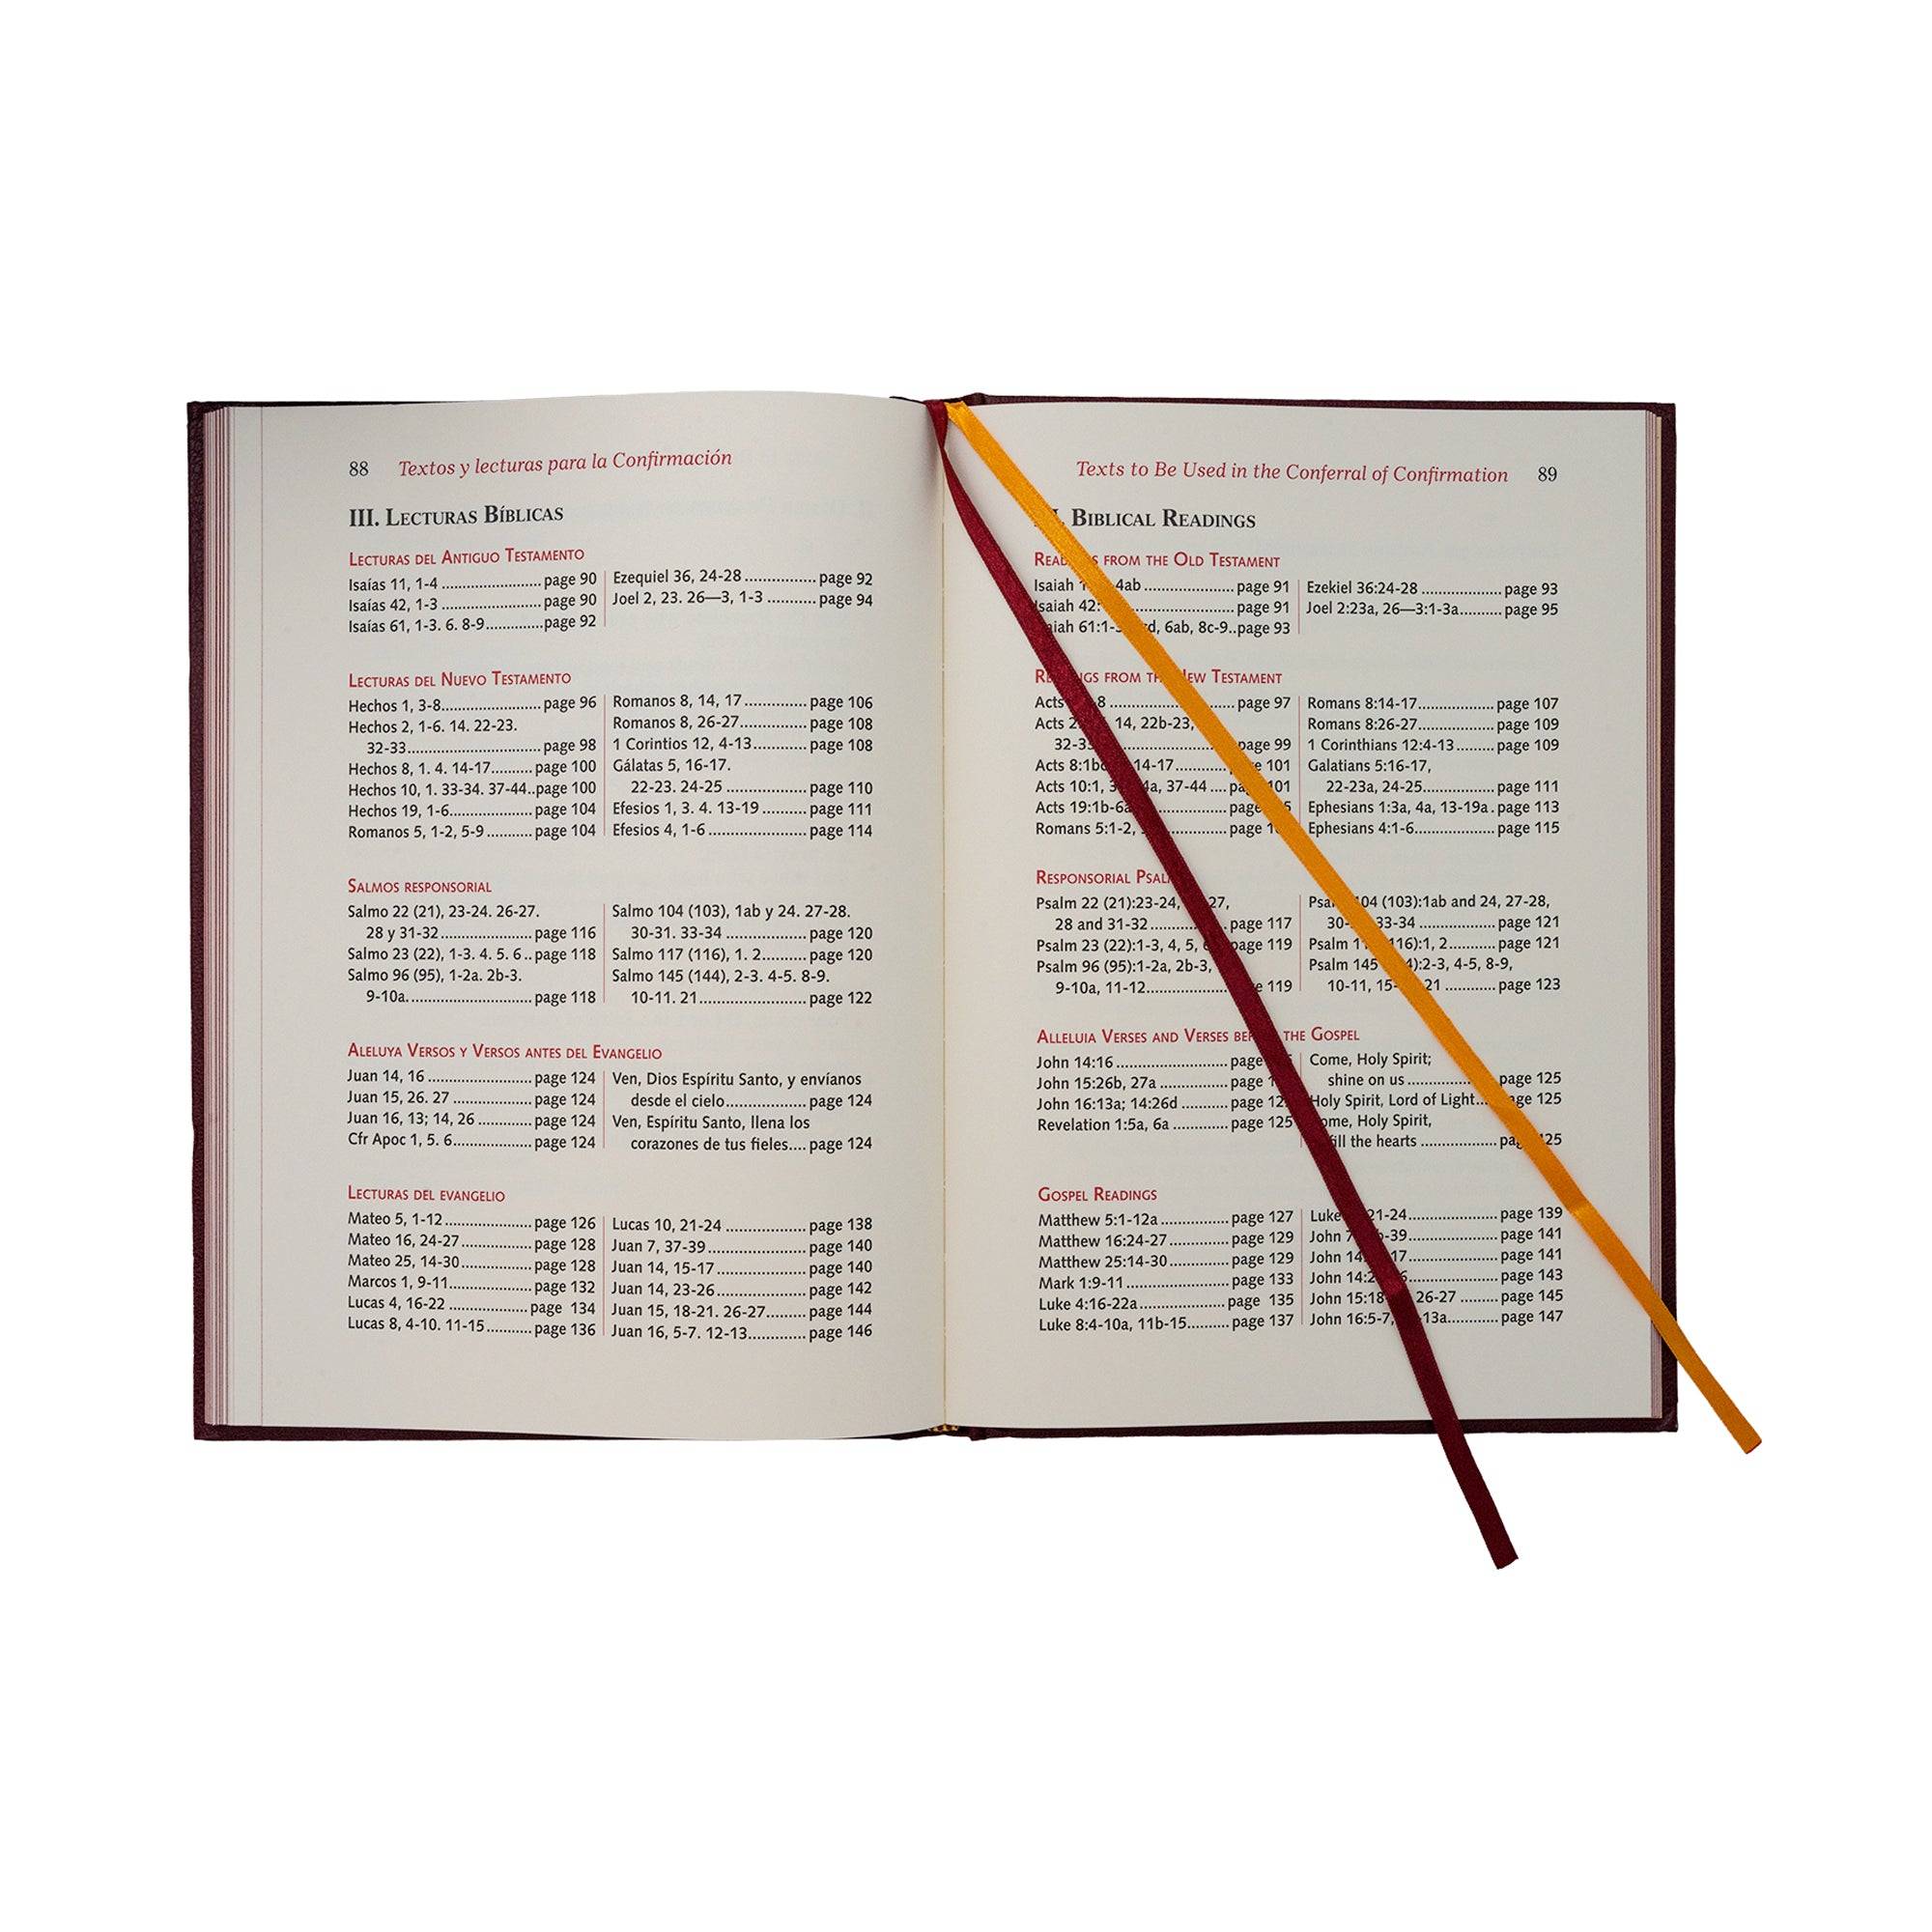 88 Textos y lecturas para la Confirmación
III. Lecturas Bíblicas
Lecturas del Antiguo Testamento
Isaías 11, 1-4 ........................ page 90
Isaías 42, 1-3 ........................ page 90
Isaías 61, 1-3. 6. 8-9.............page 92
Ezequiel 36, 24-28 ................ page 92
Joel 2, 23. 26—3, 1-3 ........... page 94
Lecturas del Nuevo Testamento
Hechos 1, 3-8........................ page 96
Hechos 2, 1-6. 14. 22-23.
32-33................................ page 98
Hechos 8, 1. 4. 14-17.......... page 100
Hechos 10, 1. 33-34. 37-44..page 100
Hechos 19, 1-6.................... page 104
Romanos 5, 1-2, 5-9........... page 104
Romanos 8, 14, 17............... page 106
Romanos 8, 26-27................ page 108
1 Corintios 12, 4-13............. page 108
Gálatas 5, 16-17.
22-23. 24-25 ................... page 110
Efesios 1, 3. 4. 13-19 .......... page 111
Efesios 4, 1-6 ....................... page 114
Salmos responsorial
Salmo 22 (21), 23-24. 26-27.
28 y 31-32...................... page 116
Salmo 23 (22), 1-3. 4. 5. 6..page 118
Salmo 96 (95), 1-2a. 2b-3.
9-10a............................. page 118
Salmo 104 (103), 1ab y 24. 27-28.
30-31. 33-34 ................... page 120
Salmo 117 (116), 1. 2.......... page 120
Salmo 145 (144), 2-3. 4-5. 8-9.
10-11. 21.......................... page 122
Aleluya Versos y Versos antes del Evangelio
Juan 14, 16 ......................... page 124
Juan 15, 26. 27 ................... page 124
Juan 16, 13; 14, 26 ............. page 124
Cfr Apoc 1, 5. 6................... page 124
Ven, Dios Espíritu Santo, y envíanos
desde el cielo................... page 124
Ven, Espíritu Santo, llena los
corazones de tus fieles.... page 124
Lecturas del evangelio
Mateo 5, 1-12 ..................... page 126
Mateo 16, 24-27.................. page 128
Mateo 25, 14-30................. page 128
Marcos 1, 9-11.................... page 132
Lucas 4, 16-22 ................... page 134
Lucas 8, 4-10. 11-15........... page 136
Lucas 10, 21-24 ................... page 138
Juan 7, 37-39....................... page 140
Juan 14, 15-17..................... page 140
Juan 14, 23-26..................... page 142
Juan 15, 18-21. 26-27.......... page 144
Juan 16, 5-7. 12-13.............. page 146
Texts to Be Used in the Conferral of Confirmation 89
Biblical Readings
from the Old Testament
Isaiah 4ab ...................... page 91
Isaiah 42: ...................... page 91
61:1- 6ab, 8c-9..page 93
Ezekiel 36:24-28 ................... page 93
Joel 2:23a, 26—3:1-3a.......... page 95
from Testament
Acts ...................... page 97
Acts 14, 22b-23,
page 99
Acts 14-17............ 101
Acts 10:1, 37-44 .... 101
Acts 19:1b-
Romans 5:1-2, ............. page
Romans 8:14-17.................. page 107
Romans 8:26-27.................. page 109
1 Corinthians 12:4-13......... page 109
Galatians 5:16-17,
22-23a, 24-25.................. page 111
Ephesians 1:3a, 4a, 13-19a. page 113
Ephesians 4:1-6................... page 115
Responsorial
Psalm 22 (21):23-24, 27,
28 and 31-32................... page 117
Psalm 23 (22):1-3, 4, 5, page 119
Psalm 96 (95):1-2a, 2b-3,
9-10a, 11-12.................... 119
(103):1ab and 24, 27-28,
33-34 .................. page 121
Psalm 1, 2........... page 121
Psalm 145 2-3, 4-5, 8-9,
10-11, 21 ............ page 123
Alleluia Verses and Verses the Gospel
John 14:16 ........................... page
John 15:26b, 27a ................ page
John 16:13a; 14:26d ........... page
Revelation 1:5a, 6a ............. page 125
Come, Holy Spirit;
shine on us ..................... page 125
Holy Spirit, Lord of Light... 125
Holy Spirit,
fill the hearts .................. 125
Gospel Readings
Matthew 5:1-12a................ page 127
Matthew 16:24-27.............. page 129
Matthew 25:14-30.............. page 129
Mark 1:9-11 ........................ page 133
Luke 4:16-22a.................... page 135
Luke 8:4-10a, 11b-15.......... page 137
Luke 21-24..................... page 139
John -39...................... page 141
John ...................... page 141
John ...................... page 143
John 15:18 26-27 ......... page 145
John 16:5-7, ............ page 147